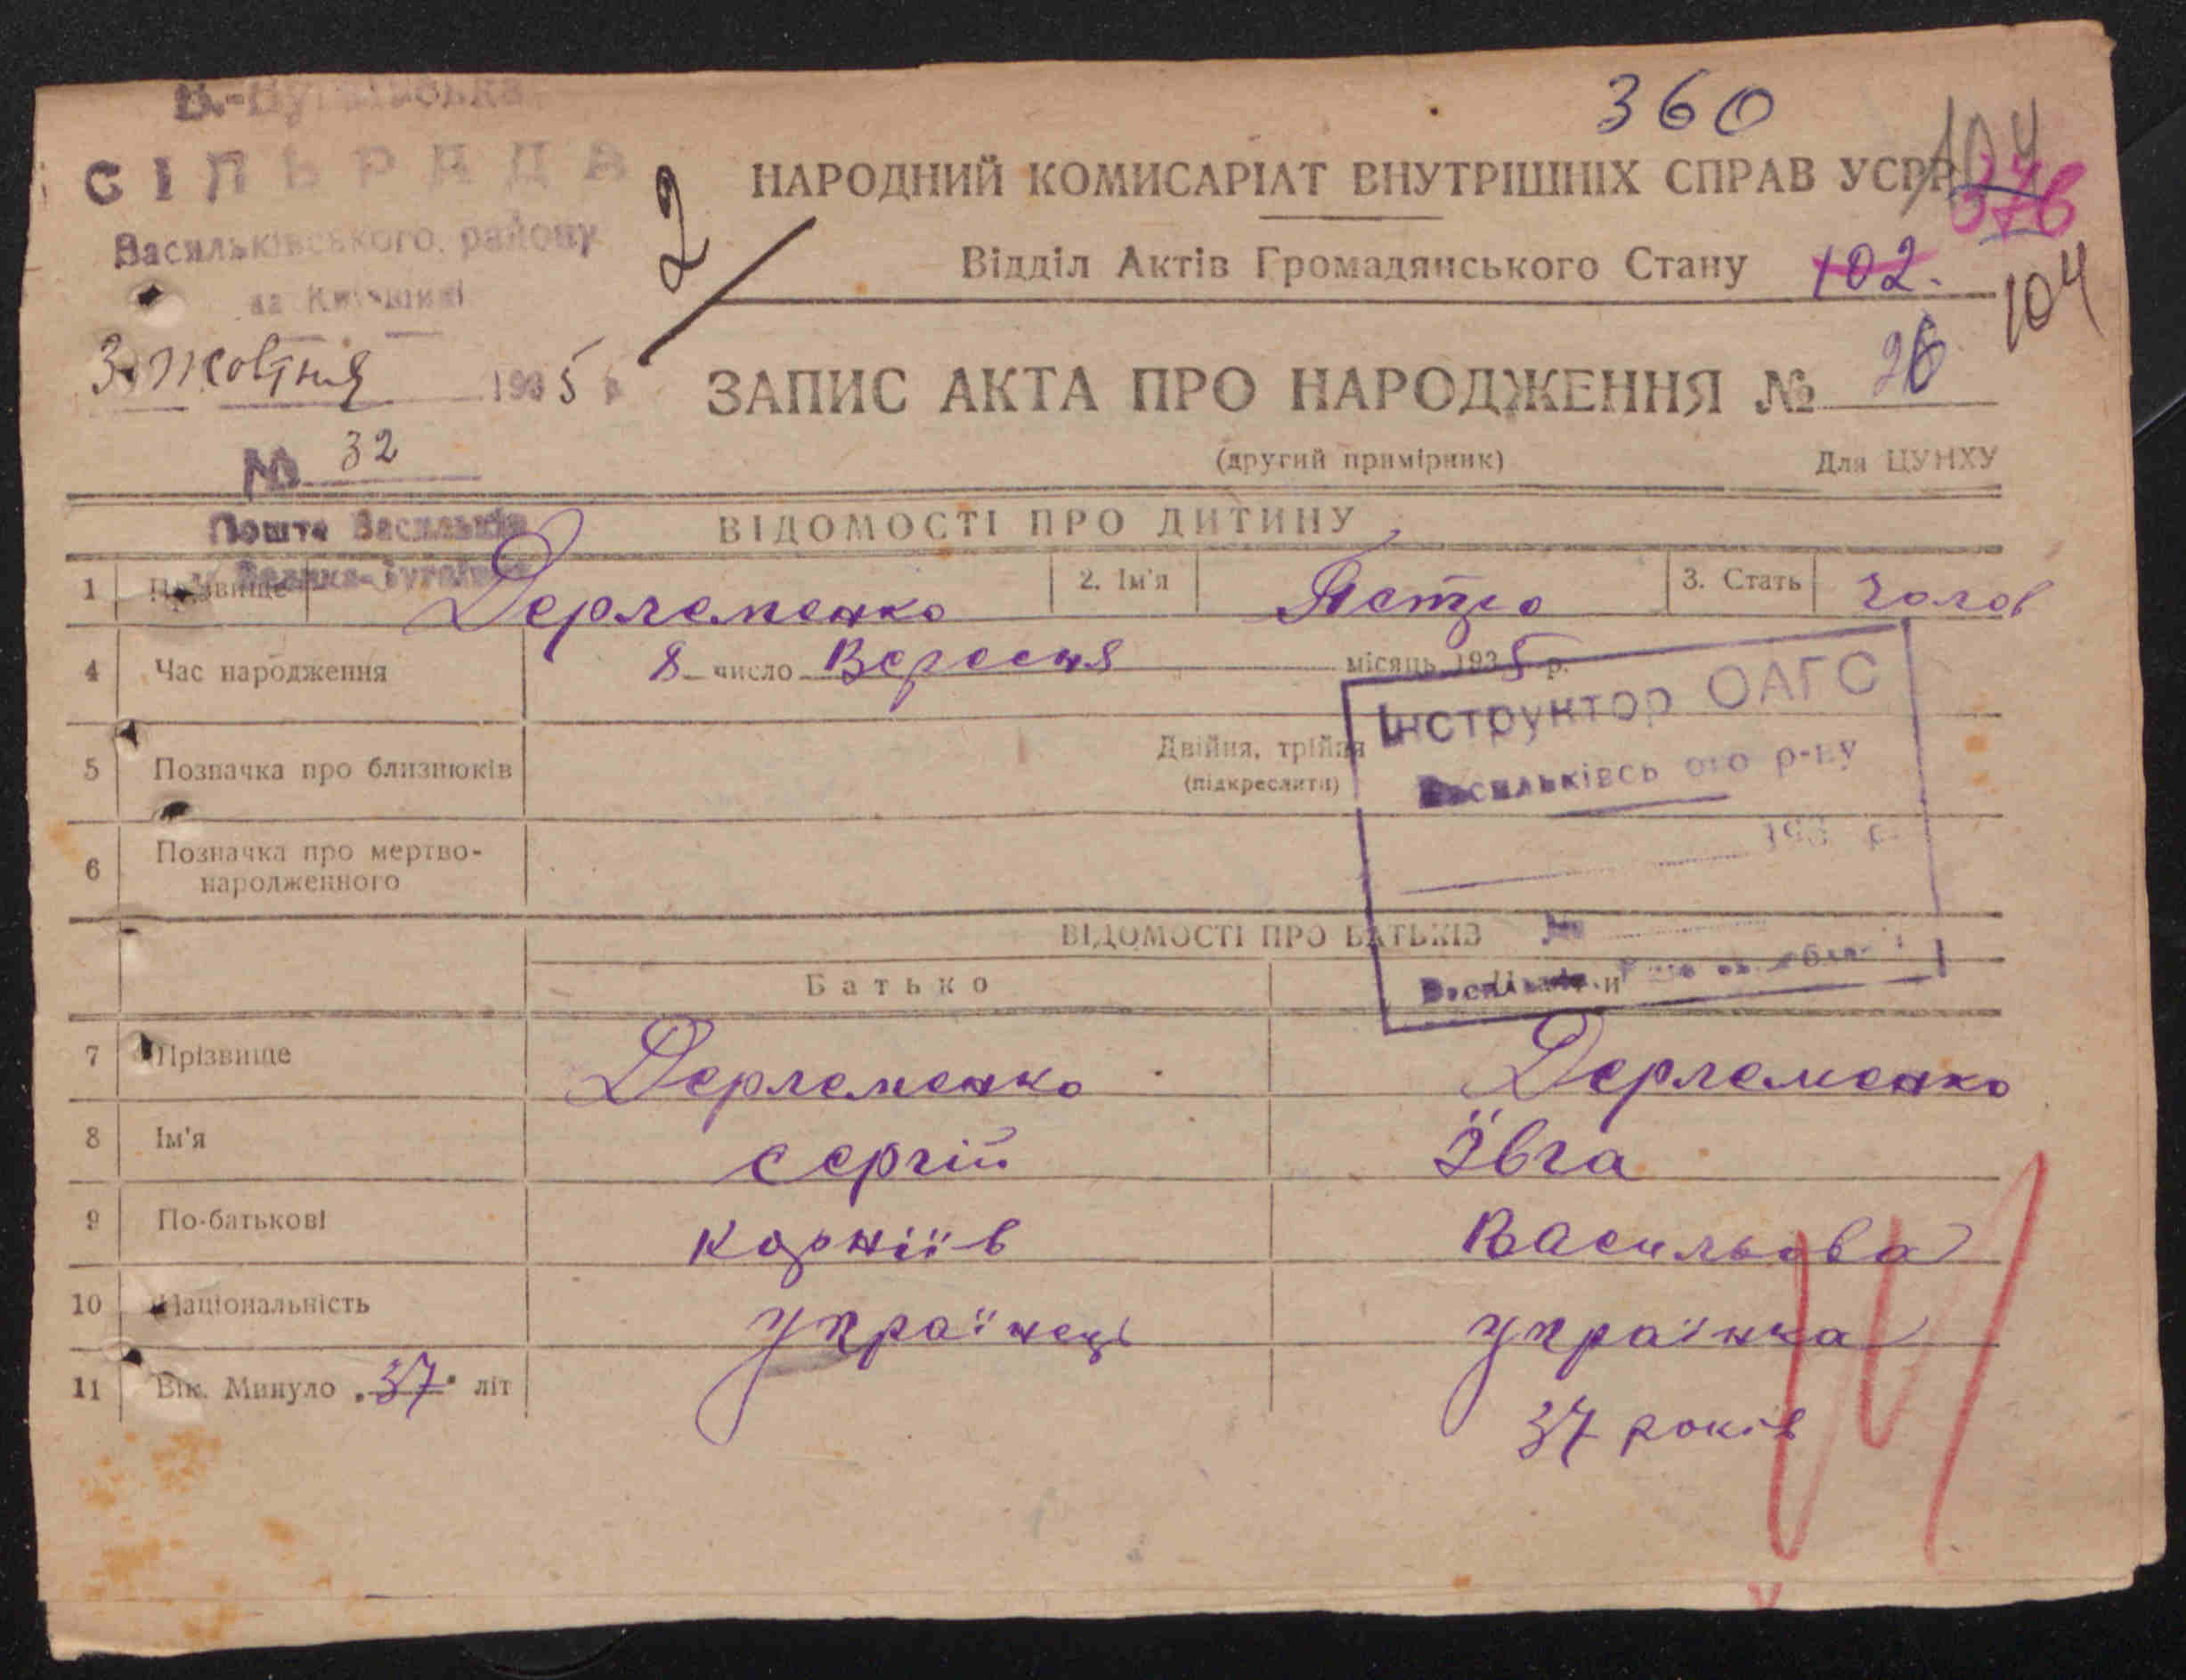 360
В.-Бугаївська
СІЛЬРАДА
Васильківського району
на Київщині
3 жовтня 1935 р.
№ 32
Пошта Васильків
2
НАРОДНИЙ КОМИСАРІАТ ВНУТРІШНІХ СПРАВ УСРР
104
376
Відділ Актів Громадянського Стану 102.
104
ЗАПИС АКТА ПРО НАРОДЖЕННЯ № 26
(другий примірник) Для ЦУНХУ
ВІДОМОСТІ ПРО ДИТИНУ
1 Прізвище Дерлеменко 2. Ім'я Петро 3. Стать Чолов
4 Час народження 8 число Вересня місяць 1935 р.
5 Позначка про близнюків Двійня, трійня
(підкреслити)
6 Позначка про мертво-
народженного
Інструктор ОАГС
Васильківсь ого р-ну
193 р.
№
ВІДОМОСТІ ПРО БАТЬКІВ
Батько Мати
7 Прізвище Дерлеменко Дерлеменко
8 Ім'я Сергій Ївга
9 По-батькові Корніїв Васильова
10 Національність Українець Українка
11 Вік. Минуло 37 літ 37 років